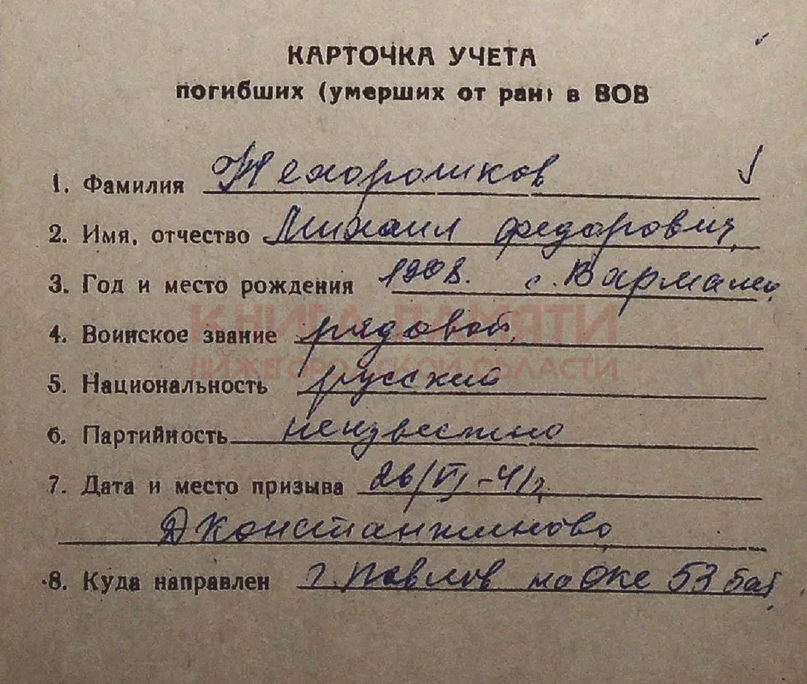 КАРТОЧКА УЧЕТА
погибших (умерших от ран) в ВОВ
1. Фамилия Нехорошков
2. Имя, отчество Михаил Федорович,
3. Год и место рождения 1908. с. Вармалеи
КНИГА ПАМЯТИ
4. Воинское звание рядовой
НИЖЕГОРОДСКОЙ ОБЛАСТИ
5. Национальность русский
6. Партийность неизвестно
7. Дата и место призыва 26/VI-41г.
Дконстантиново
8. Куда направлен г. Павлов на Оке 53 бат